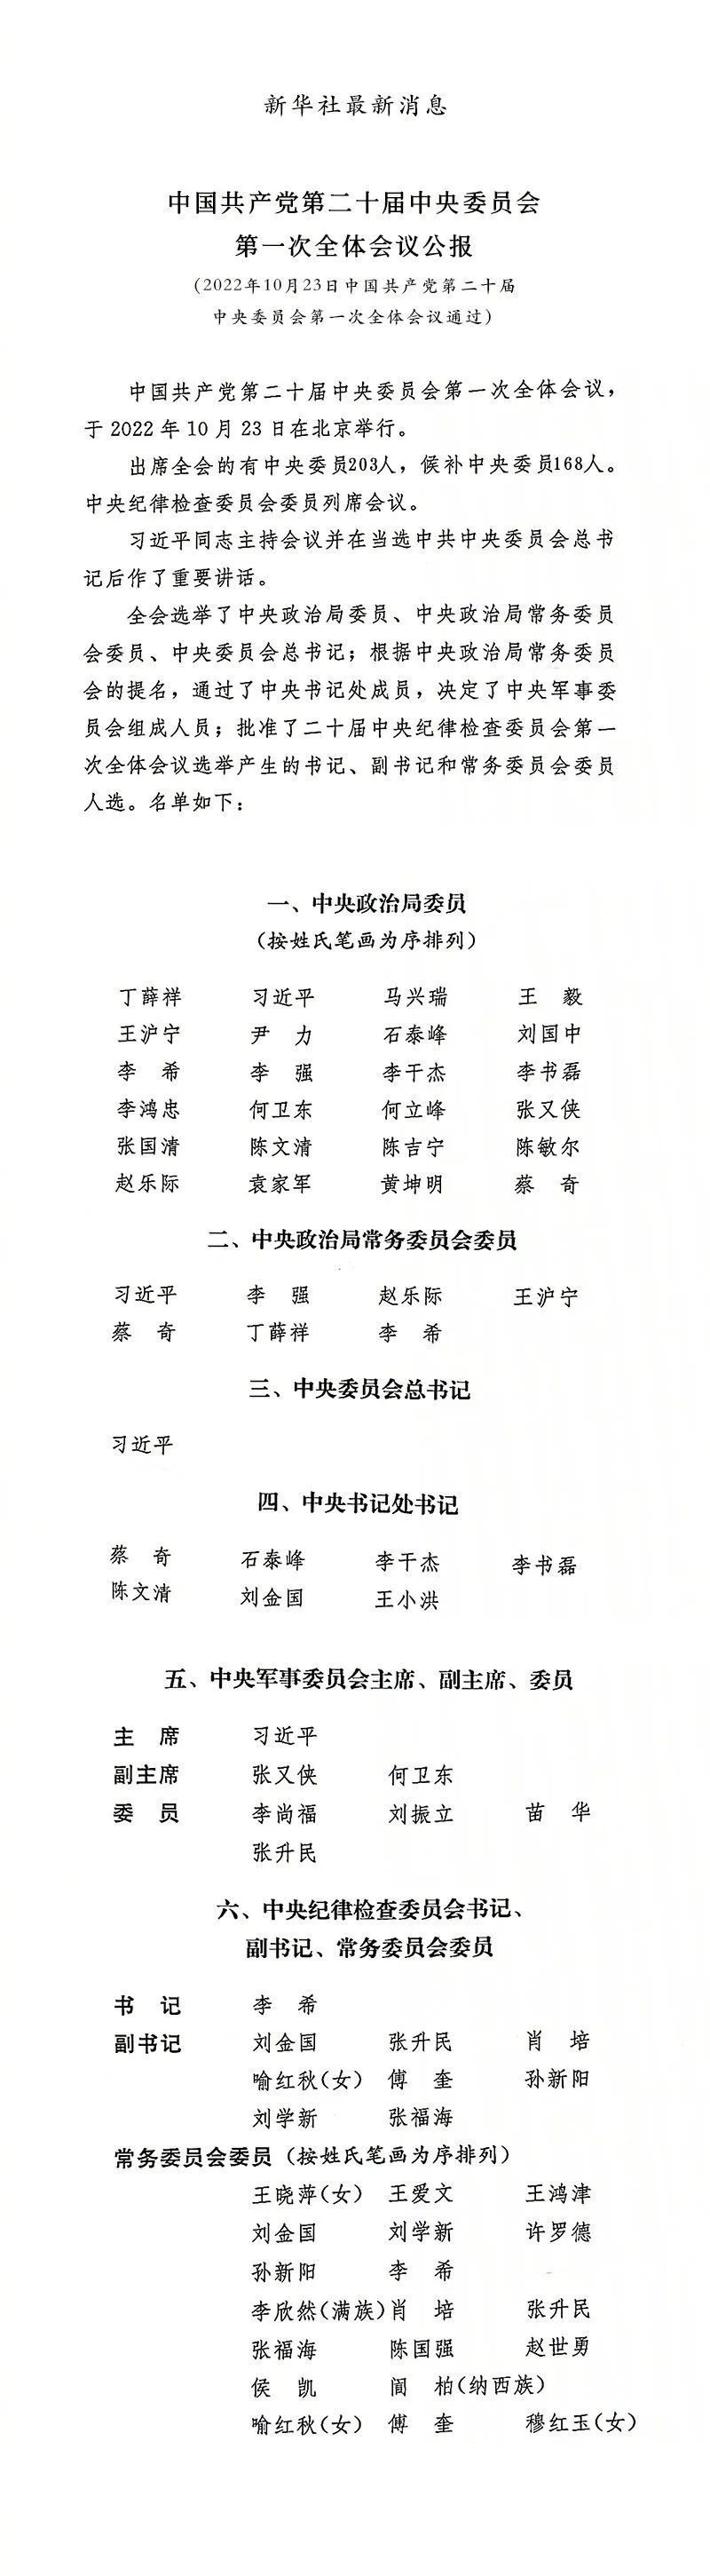 新华社最新消息
中国共产党第二十届中央委员会
第一次全体会议公报
(2022年10月23日中国共产党第二十届
中央委员会第一次全体会议通过)
中国共产党第二十届中央委员会第一次全体会议，
于 2022 年 10 月 23 日在北京举行。
出席全会的有中央委员203人，候补中央委员168人。
中央纪律检查委员会委员列席会议。
习近平同志主持会议并在当选中共中央委员会总书
记后作了重要讲话。
全会选举了中央政治局委员、中央政治局常务委员
会委员、中央委员会总书记；根据中央政治局常务委员
会的提名，通过了中央书记处成员，决定了中央军事委
员会组成人员；批准了二十届中央纪律检查委员会第一
次全体会议选举产生的书记、副书记和常务委员会委员
人选。名单如下：
一、中央政治局委员
（按姓氏笔画为序排列）
丁薛祥 习近平 马兴瑞 王 毅
王沪宁 尹 力 石泰峰 刘国中
李 希 李 强 李干杰 李书磊
李鸿忠 何卫东 何立峰 张又侠
张国清 陈文清 陈吉宁 陈敏尔
赵乐际 袁家军 黄坤明 蔡 奇
二、中央政治局常务委员会委员
习近平 李 强 赵乐际 王沪宁
蔡 奇 丁薛祥 李 希
三、中央委员会总书记
习近平
四、中央书记处书记
蔡 奇 石泰峰 李干杰 李书磊
陈文清 刘金国 王小洪
五、中央军事委员会主席、副主席、委员
主 席 习近平
副主席 张又侠 何卫东
委 员 李尚福 刘振立 苗 华
张升民
六、中央纪律检查委员会书记、
副书记、常务委员会委员
书 记 李 希
副书记 刘金国 张升民 肖 培
喻红秋(女) 傅 奎 孙新阳
刘学新 张福海
常务委员会委员（按姓氏笔画为序排列）
王晓萍(女) 王爱文 王鸿津
刘金国 刘学新 许罗德
孙新阳 李 希
李欣然(满族) 肖 培 张升民
张福海 陈国强 赵世勇
侯 凯 阊 柏(纳西族)
喻红秋(女) 傅 奎 穆红玉(女)